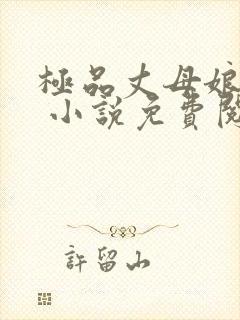 極品丈母娘
小說免費閱
許留山